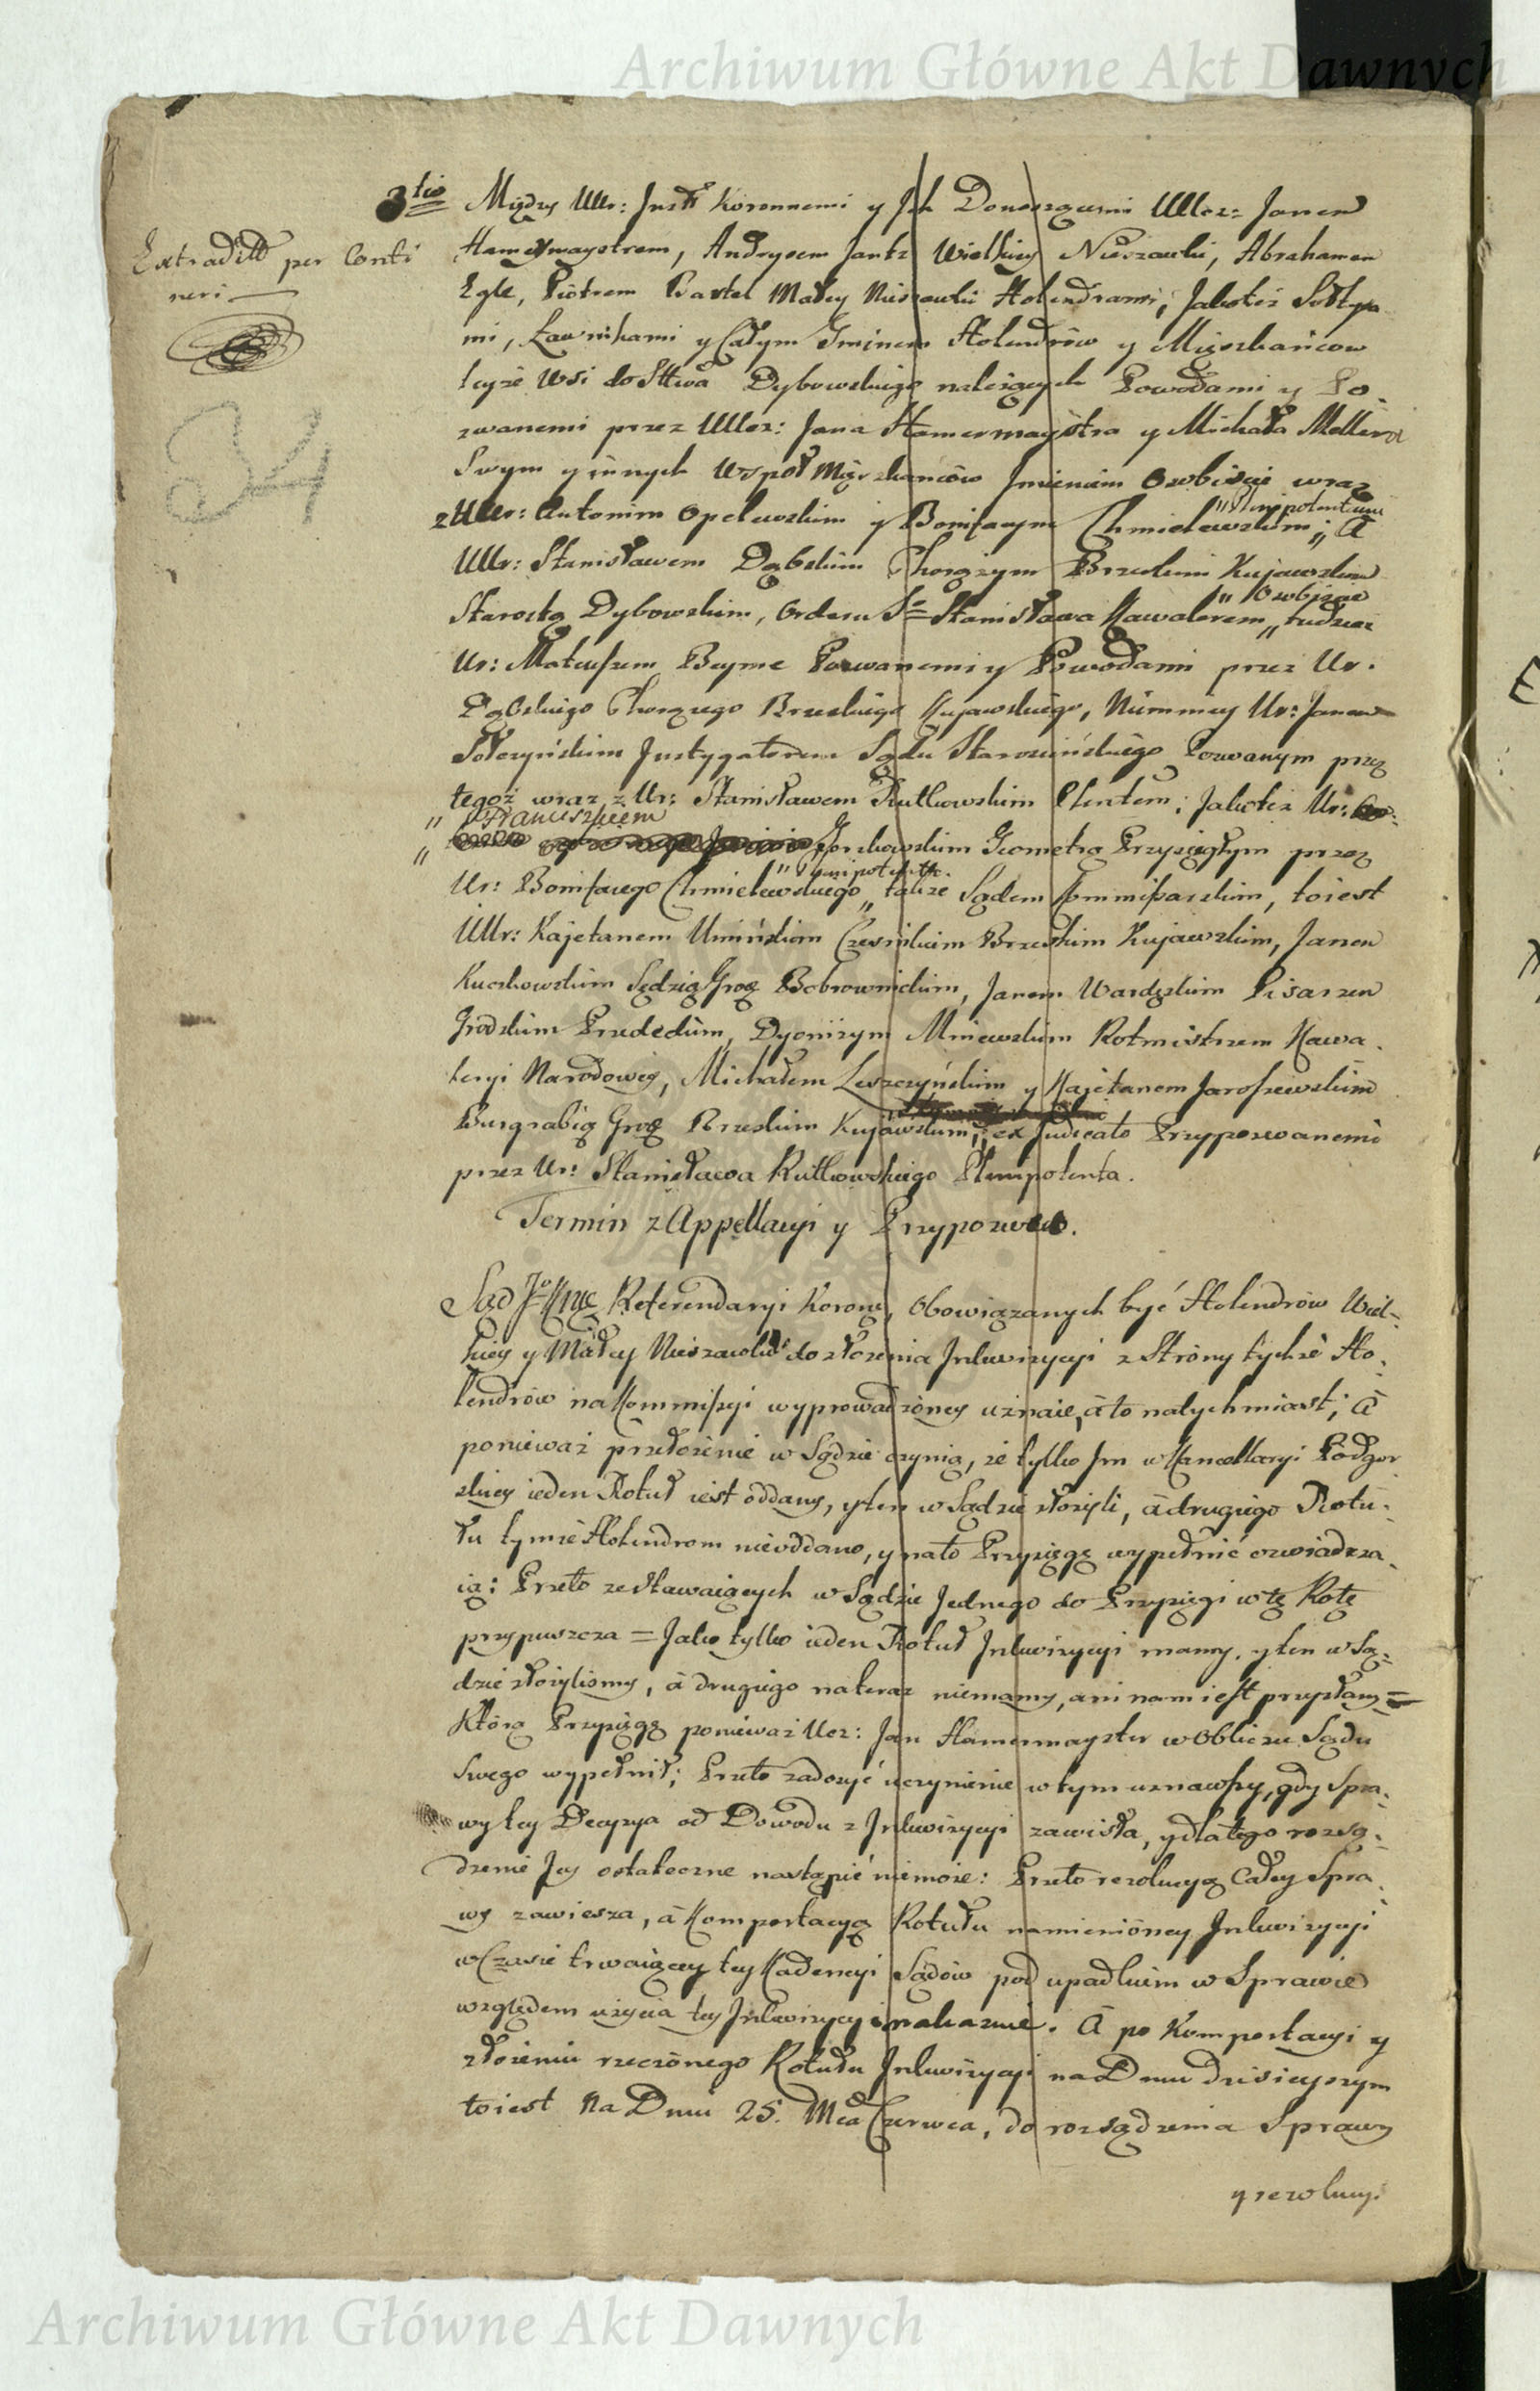 Archiwum Główne Akt Dawnych
3tio Między Ullr: Instr Koronnemi y Ich Donoszącemi Ullcz: Janem
Extraditt per Conti
neri
Hamermaystrem, Andrysem Jantz Wielkiey Nieszawki, Abrahamem
Egle, Piotrem Bartel Małey Nieszawki Holendrami, Jakoteż Sołtysa
mi, Ławnikami y Całym Gminem Holendrów y Mieszkańcow
teyże Wsi do Sttwa Dybowskiego należących Powodami y Po
24
zwanemi przez Ullcz: Jana Hamermaystra y Michała Mellera
Swym y innych Wspoł Mięszkanców Imieniem Osobiscie wraz
"Plenipotentami
z Ullr: Antonim Opelewskim y Bonifacym Chmielewskim „ A
Ullr: Stanisławem Dąbskim Chorązym Brzeskim Kujawskim
" Osobiscie
Starostą Dybowskim, Orderu So Stanisława Kawalerem „ tudziez
Ur: Mateuszem Beyme Pozwanemi y Powodami przez Ur.
Dąbskiego Chorązego Brzeskiego Kujawskiego, Niemniey Ur: Janem
Sołczyńskim Instygatorem Sądu Starościńskiego Pozwanym przez
tegoż wraz z Ur: Stanisławem Rutkowskim Plentem; Jakoteż Ur:
" Franciszkiem
" Gorzkowskim Geometrą Przysięgłym przez
" Plenipotenta.
Ur: Bonifacego Chmielewskiego „ także Sądem Kommissarskim, toiest
Ullr: Kajetanem Umińskim Czesnikiem Brzeskim Kujawskim, Janem
Kuczkowskim Sędzią Grog Bobrownickim, Janem Wardęskim Pisarzem
Grodzkim Przedeckim, Dyonizym Mniewskim Rotmistrzem Kawa
leryi Narodowey, Michałem Leszczyńskim y Kajetanem Jaroszewskim
Burgrabią Grog Brzeskim Kujawskim, ex Judicato Przypozwanemi
przez Ur: Stanisława Rutkowskiego Plenipotenta.
Termin z Appellacyi y Przypozwu.
Sąd Jo Kmci Referendaryi Koronney, Obowiązanych być Holendrów Wiel
kiey y Małey Nieszawki do złożenia Inkwizycyi z Strony tychże Ho
lendrów na Kommissyi wyprowadzoney uznaie, á to natychmiast; A
ponieważ przełożenie w Sądzie czynią, że tylko Im w Kancellaryi Podgor
skiey ieden Rotuł iest oddany, y ten w Sądzie złożyli, á drugiego Rotu
łu tymże Holendrom nieoddano, y na to Przysięgę wypełnić oswiadcza
ią; Przeto zestawaiących w Sądzie Jednego do Przysięgi w tę Rotę
przypuszcza = Jako tylko ieden Rotuł Inkwizycyi mamy, y ten w Są
dzie złożylismy, á drugiego na teraz niemamy, ani nam iest przysłany =
Którą Przysięgę ponieważ Ucz: Jan Hamermayster w Obliczu Sądu
Swego wypełnił; Przeto zadosyć uczynienie w tym uznawszy, gdy Spra
wy tey Decyzya od Dowodu z Inkwizycyi zawisła, y dla tego rozsą
dzenie Jey ostateczne nastąpić niemoże: Przeto rezolucyą Całey Spra
wy zawiesza, á Komportacyą Rotułu namienioney Inkwizycyi
w Czasie trwaiącey tey Kadencyi Sądów pod upadkiem w Sprawie
względem użycia tey Inkwizycyi nakazuie. A po Komportacyi y
złożeniu rzeczonego Rotułu Inkwizycyi na Dniu dzisieyszym
toiest Na Dniu 25. Mca Czerwca, do rozsądzenia Sprawy
y rezolucyi
Archiwum Główne Akt Dawnych